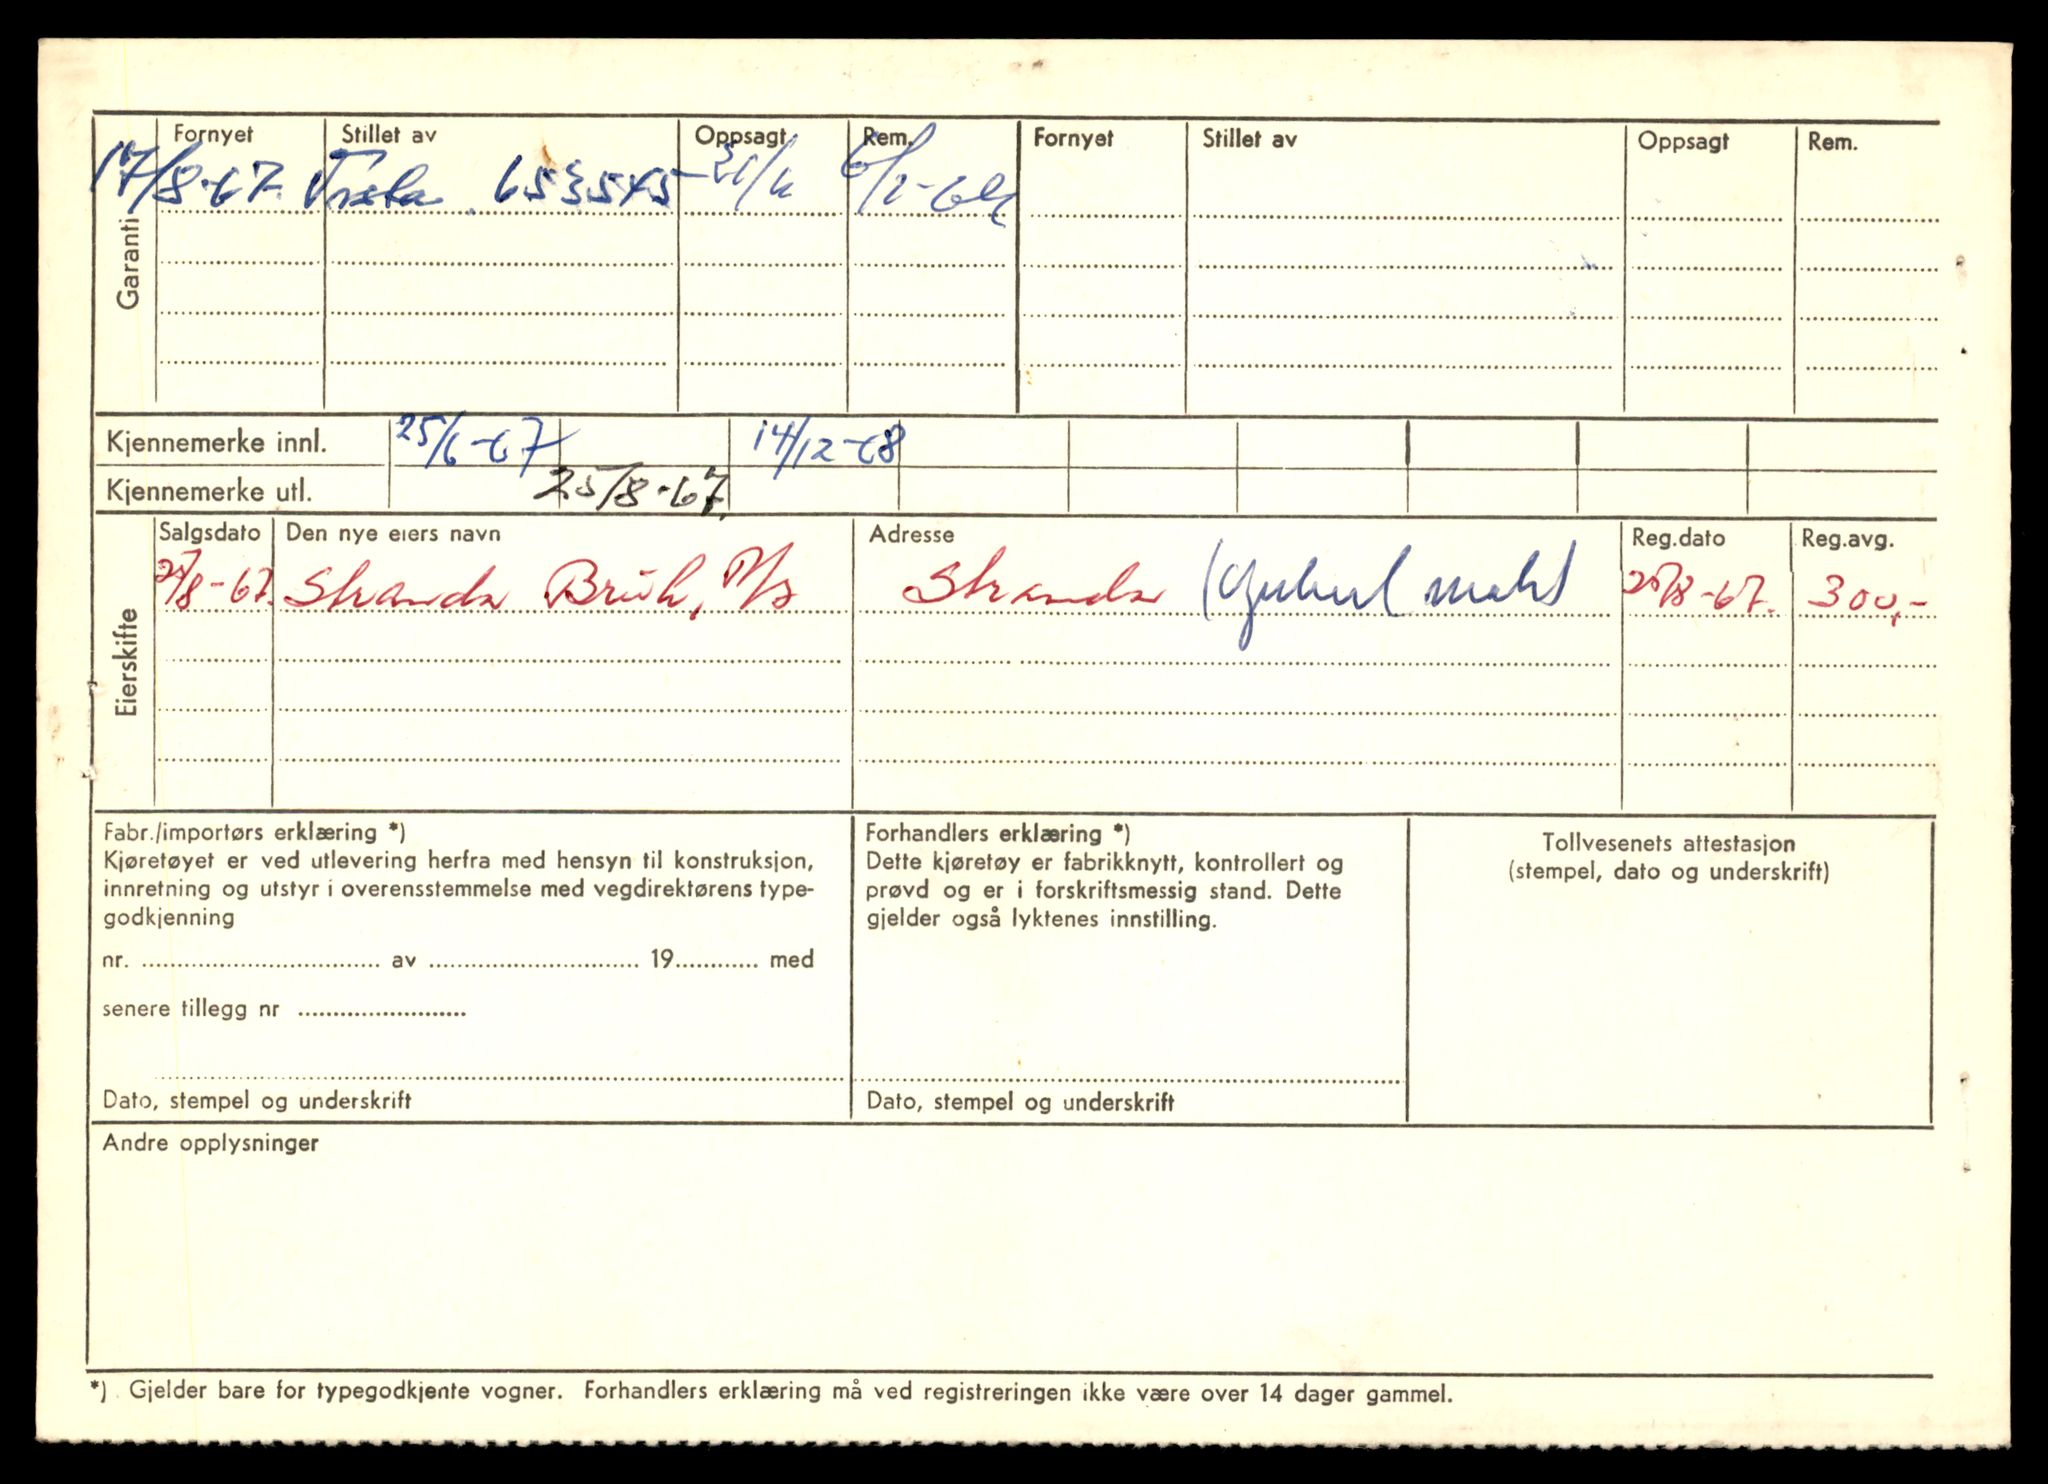 Garanti
Fornyet Stillet av Oppsagt Rem. Fornyet Stillet av Oppsagt Rem.
17/8-67. 653545
Kjennemerke innl. 25/6-67 14/12-68
Kjennemerke utl. 25/8-67.
Eierskifte
Salgsdato Den nye eiers navn Adresse Reg.dato Reg.avg.
25/8-67. Stranda Bruk, A/S Stranda 25/8-67. 300,-
Fabr./importørs erklæring *)
Kjøretøyet er ved utlevering herfra med hensyn til konstruksjon,
innretning og utstyr i overensstemmelse med vegdirektørens type-
godkjenning
nr. .................... av .................... 19............ med
senere tillegg nr ........................
Dato, stempel og underskrift
Forhandlers erklæring *)
Dette kjøretøy er fabrikknytt, kontrollert og
prøvd og er i forskriftsmessig stand. Dette
gjelder også lyktenes innstilling.
Dato, stempel og underskrift
Tollvesenets attestasjon
(stempel, dato og underskrift)
Andre opplysninger
*) . Gjelder bare for typegodkjente vogner. Forhandlers erklæring må ved registreringen ikke være over 14 dager gammel.